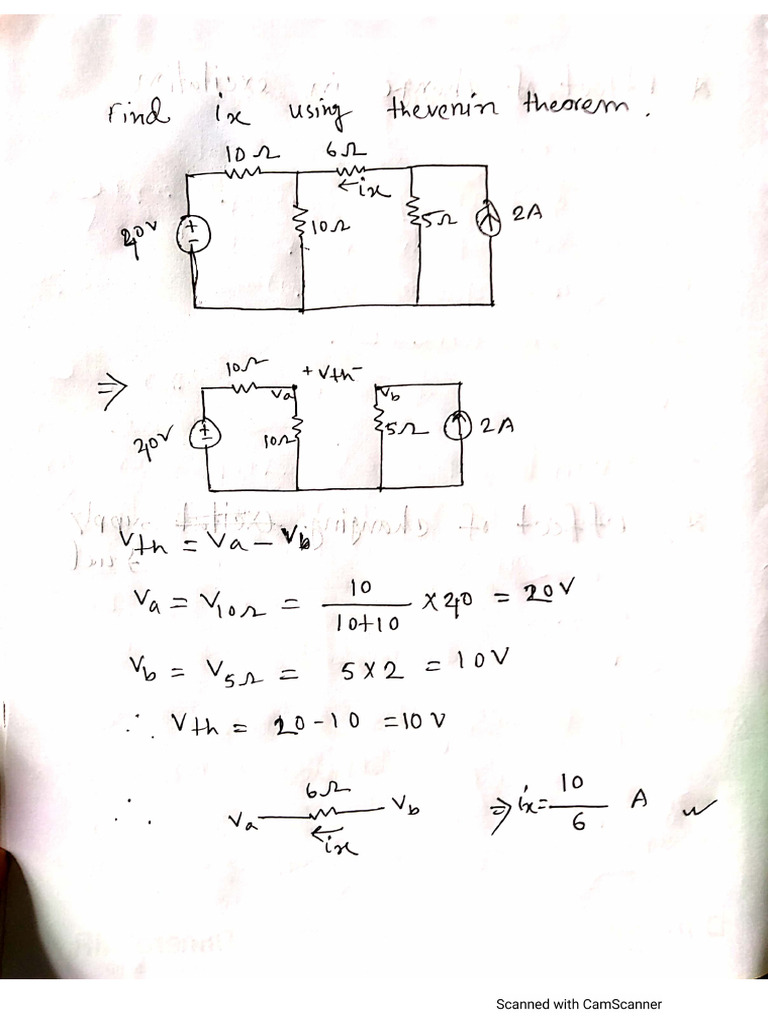 rind ix using thevenin theorem.
10Ω 6Ω
←ix
10Ω 5Ω 2A
+
-
10Ω + Vth -
Va Vb
10Ω 5Ω 2A
⇒
Vth = Va - Vb
Va = V10Ω = 10/10+10 × 40 = 20V
Vb = V5Ω = 5 × 2 = 10V
∴ Vth = 20 - 10 = 10V
6Ω
∴ Va Vb ⇒ ix = 10/6 A
←ix
Scanned with CamScanner